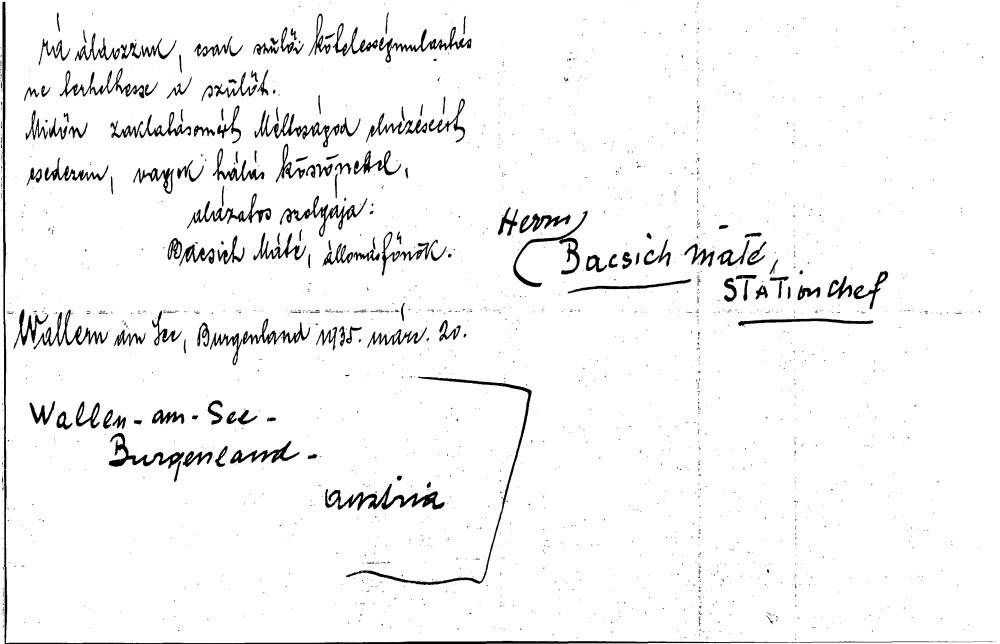 rá áldozzuk, csak szülői kötelességmulasztás
ne terhelhesse a szülőt.
Midőn zaklatásomért Méltóságod elnézéséért
esedezem, vagyok hálás köszönettel,
alázatos szolgája:
Bacsich Máté, állomásfőnök.
Wallern am See, Burgenland 1935. márc. 20.
Herrn
Bacsich Máté,
STATionchef
Wallen-am-See-
Burgenland-
Austria